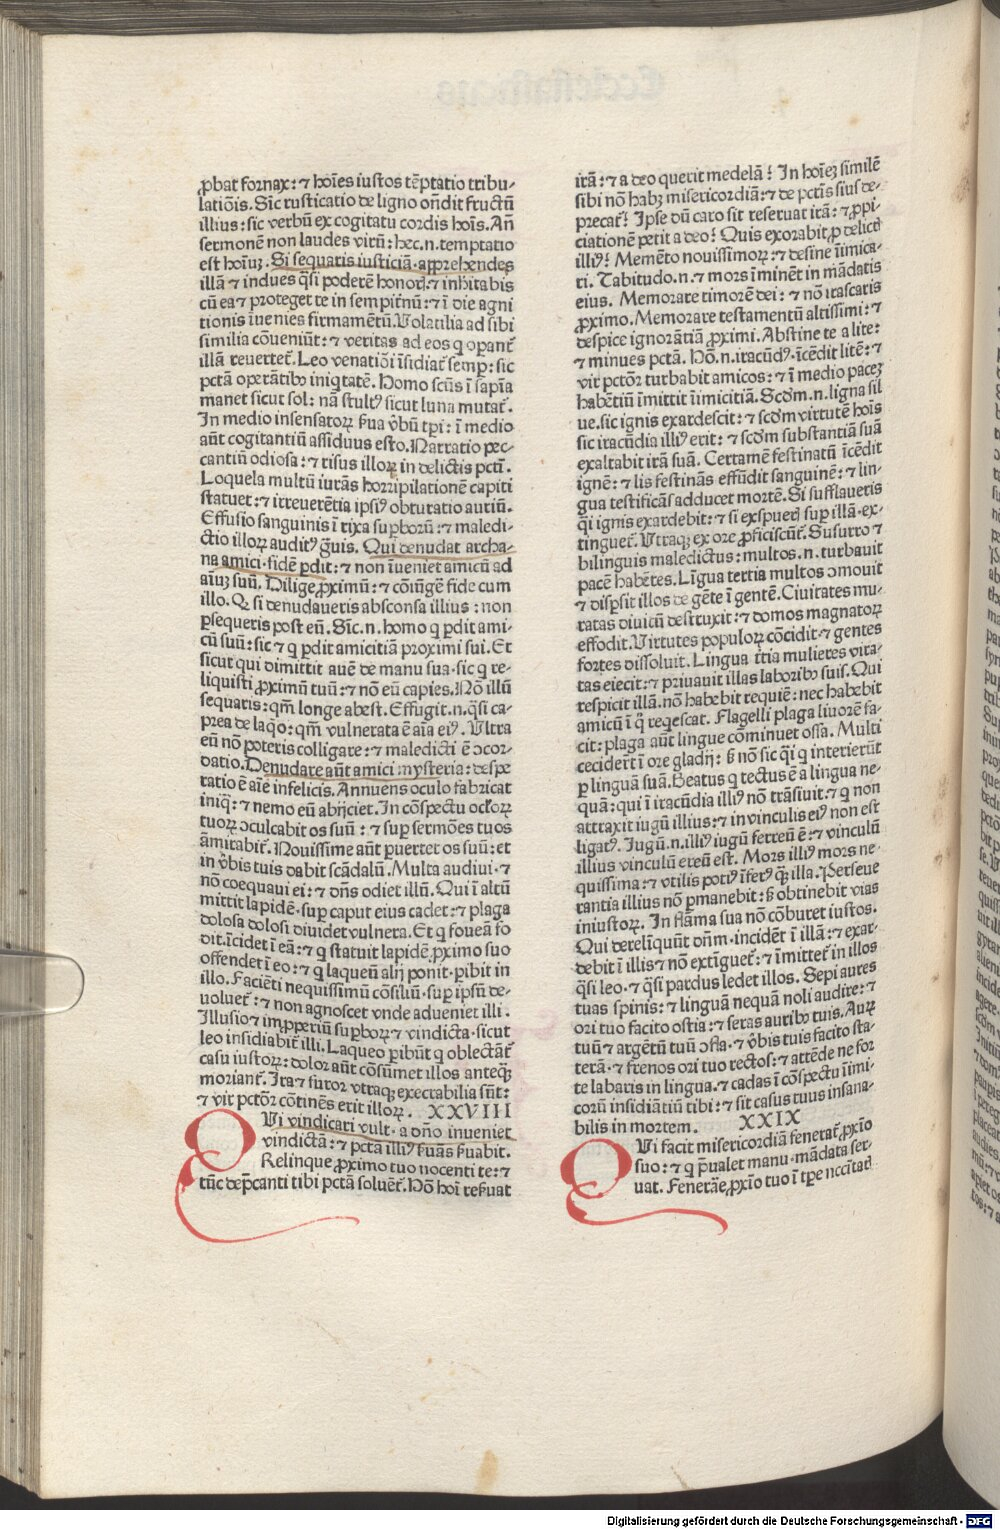 ꝓbat fornax: ⁊ hoı̄es iustos tēptatio tribu-
latiōis. Sic̄ rusticatio de ligno on̄dit fructū
illius: sic verbū ex cogitatu cordis hoı̄s. An̄
sermonē non laudes virū: hec.n.temptatio
est hoı̄uꝫ. Si sequaris iusticiā. apprehendes
illā ⁊ indues q̄si poderē honorꝭ. ⁊ inhitabis
cū ea ⁊ proteget te in sempit̄nū: ⁊ ī die agni
tionis īuenies firmamētū. Volatilia ad sibi
similia cōueniūt: ⁊ veritas ad eos q opant̄
illā reuertet̄. Leo venatiōi īsidiat̄ semp̱: sic
pctā operātibꝰ iniq̇tatē. Homo scūs ī sapīa
manet sicut sol: nā stultꝰ sicut luna mutat̄.
In medio insensatoꝝ ẜua v̄bū tp̄i: ī medio
aūt cogitantiū assiduus esto. Narratio pec-
cantiū odiosa: ⁊ risus illoꝝ in delictis pcti̅.
Loquela multū iurās horripilationē capiti
statuet: ⁊ irreuerētia ipsiꝰ obturatio auriū.
Effusio sanguinis ī rixa suꝑboꝝ: ⁊ maledi-
ctio illoꝝ auditꝰ g̈uis. Qui denudat archa-
na amici. fidē ꝑdit: ⁊ non īueniet amicū ad
aı̄uꝫ suū. Dilige ꝓximū: ⁊ cōiūgē fide cum
illo. Q̷ si denudaueris absconsa illius: non
ꝑsequeris post eū. Sic̄.n. homo q ꝑdit ami-
cū suū: sic ⁊ q ꝑdit amicitiā proximi sui. Et
sicut qui dimittit auē de manu sua. sic q re-
liquisti ꝓximū tuū: ⁊ nō eū capies. Nō illū
sequaris: qm̄ longe abest. Effugit.n. q̄si ca-
prea de laq̇o: qm̄ vulnerata ē aı̄a eiꝰ. Vltra
eū nō poteris colligare: ⁊ maledicti ē ↄcor-
datio. Denudare aūt amici mysteria: despe
ratio ē aı̄e infelicis. Annuens oculo fabricat
iniq̇: ⁊ nemo eū abijciet. In cōspectu ocl̓oꝝ
tuoꝝ ↄculcabit os suū: ⁊ suꝑ sermōes tuos
āmirabit̄. Nouissime aūt ꝑuertet os suū: et
in v̄bis tuis dabit scādalū. Multa audiui. ⁊
nō coequaui ei: ⁊ dn̄s odiet illū. Qui ī altū
mittit lapidē. suꝑ caput eius cadet: ⁊ plaga
dolosa dolosi diuidet vulnera. Et q foueā fo
dit. īcidet ī eā: ⁊ q statuit lapidē ꝓximo suo
offendet ī eo: ⁊ q laqueū alij ponit. ꝑibit in
illo. Faciēti nequissimū cōsiliū. suꝑ ipsū de-
uoluet̄: ⁊ non agnoscet vnde adueniet illi.
Illusio ⁊ imꝓperiū suꝑboꝝ ⁊ vindicta. sicut
leo insidiabit̄ illi. Laqueo ꝑibūt q oblectāt̄
casu iustoꝝ: dolor aūt cōsūmet illos anteq̄ꝫ
moriant̄. Ira ⁊ furor vtraqꝫ execrabilia sūt:
⁊ vir pctōr cōtinēs erit illoꝝ. XXVIII
QVi vindicari vult. a dn̄o inueniet
vindictā: ⁊ pctā illiꝰ ẜuās ẜuabit.
Relinque ꝓximo tuo nocenti te: ⁊
tūc dep̄canti tibi pctā soluēt̄. Hō hoı̄ reẜuat
irā: ⁊ a deo querit medelā? In hoı̄eꝫ similē
sibi nō habꝫ misericordiā: ⁊ de pctı̄s suis de-
precat̄? Ipse dū caro sit reseruat irā: ⁊ ꝓpi-
ciationē petit a deo? Quis exorabit ꝓ delictꝭ
illiꝰ? Memēto nouissimoꝝ: ⁊ desine īimica-
ri. Tabitudo.n. ⁊ mors īminēt in mādatis
eius. Memorare timorē dei: ⁊ nō irascaris
ꝓximo. Memorare testamentū altissimi: ⁊
despice ignorātiā ꝓximi. Abstine te a lite:
⁊ minues pctā. Hō.n. iracūdꝰ. īcēdit litē: ⁊
vir pctōr turbabit amicos: ⁊ ī medio paceꝫ
habētiū īmittit īimicitiā. Scdꝫm.n. ligna sil
ue. sic ignis exardescit: ⁊ scdꝫm virtutē hoı̄s
sic iracūdia illiꝰ erit: ⁊ scdꝫm substantiā suā
exaltabit irā suā. Certamē festinatū īcēdit
ignē: ⁊ lis festinās effūdit sanguinē: ⁊ lin-
gua testificās adducet mortē. Si sufflaueris
q̄i ignis exardebit: ⁊ si expuerꝭ suꝑ illā. ex-
tinguet̄. Vtraqꝫ ex ore ꝓficiscūt̄. Susurro ⁊
bilinguis maledictus: multos.n. turbauit
pacē habētes. Līgua tertia multos ↄmouit
⁊ disꝑsit illos de gēte ī gentē. Ciuitates mu-
ratas diuitū destruxit: ⁊ domos magnatoꝝ
effodit. Virtutes populoꝝ cōcidit. ⁊ gentes
fortes dissoluit. Lingua t̄tia mulieres vira-
tas eiecit: ⁊ priuauit illas laboribꝰ suis. Qui
respicit illā. nō habebit requiē: nec habebit
amicū ī q̇ reqescat. Flagelli plaga liuorē fa-
cit: plaga aūt lingue cōminuet ossa. Multi
ceciderūt ī ore gladij: ẜ nō sic q̄i q interierūt
ꝑ linguā suā. Beatus q tectus ē a lingua ne-
quā: qui ī iracūdia illiꝰ nō trāsiuit: ⁊ q non
attraxit iugū illius: ⁊ in vinculis eiꝰ non est
ligatꝰ. Iugū.n. illiꝰ iugū ferreū ē: ⁊ vinculū
illius vinculū ereū est. Mors illiꝰ mors ne-
quissima: ⁊ vtilis potiꝰ īfer̄ꝰ q̄ꝫ illa. Perseue
rantia illius nō ꝑmanebit: ẜ obtinebit vias
iniustoꝝ. In flāma sua nō cōburet iustos.
Qui derelīquūt dn̄m. incidēt ī illā: ⁊ exar-
debit ī illis ⁊ nō extīguet̄: ⁊ īmittet̄ in illos
q̄si leo. ⁊ q̄si pardus ledet illos. Sepi aures
tuas spinis: ⁊ linguā nequā noli audire: ⁊
ori tuo facito ostia: ⁊ seras auribꝰ tuis. Auꝝ
tuū ⁊ argētū tuū ↄfla. ⁊ v̄bis tuis facito sta-
terā. ⁊ frenos ori tuo rectos: ⁊ attēde ne for
te labaris in lingua. ⁊ cadas ī cōspectu īimi-
corū insidiātiū tibi: ⁊ sit casus tuus insana-
bilis in mortem. XXIX
QVi facit misericordiā fenerat̄ ꝓxı̄o
suo: ⁊ q p̄ualet manu. mādata ser-
uat. Fenerāe ꝓxı̄o tuo ī tp̄e ncc̄itatꝭ
Digitalisierung gefördert durch die Deutsche Forschungsgemeinschaft - DFG